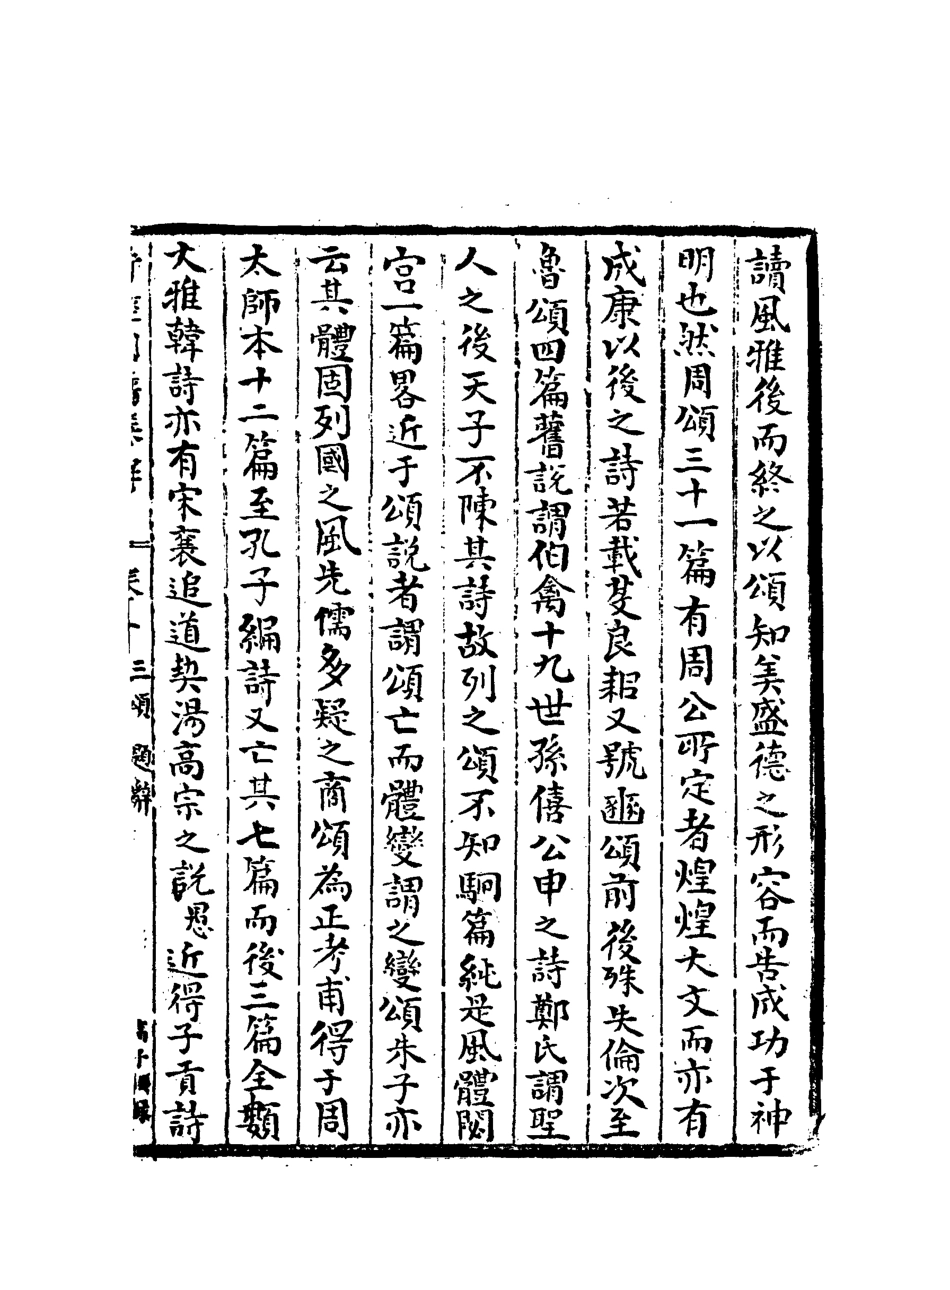 讀風雅後而終之以頌知美盛德之形容而告成功于神
明也然周頌三十一篇有周公所定者煌煌大文而亦有
成康以後之詩若載芟良耜又號豳頌前後殊失倫次至
魯頌四篇舊說謂伯禽十九世孫僖公申之詩鄭氏謂聖
人之後天子不陳其詩故列之頌不知駉篇純是風體閟
宮一篇畧近于頌說者謂頌亡而體變謂之變頌朱子亦
云其體固列國之風先儒多疑之商頌為正考甫得于周
太師本十二篇至孔子編詩又亡其七篇而後三篇全類
大雅韓詩亦有宋襄追道契湯高宗之說愚近得子貢詩
三頌 題辭